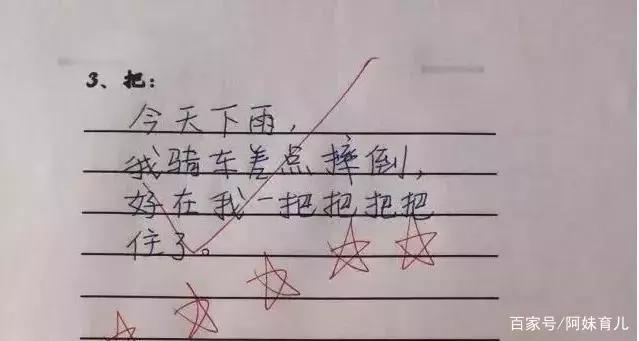 3、把：
今天下雨，
我骑车差点摔倒，
好在我一把把把把
住了。
百家号/阿妹育儿